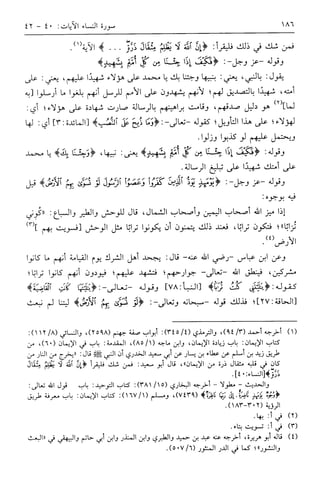 ١٨٦ سورة النساء الآيات: ٤٠ - ٤٢
فمن شك في ذلك فليقرأ: ﴿إِنَّ اللَّهَ لَا يَظْلِمُ مِثْقَالَ ذَرَّةٍ ...﴾ الآية(١).
وقوله -عز وجل-: ﴿فَكَيْفَ إِذَا جِئْنَا مِن كُلِّ أُمَّةٍ بِشَهِيدٍ﴾
يقول: بالنبي، يعني: بنبيها وجئنا بك يا محمد على هؤلاء شهيدًا عليهم، يعني: على
أمته، شهيدًا بالتصديق لهم؛ لأنهم يشهدون على الأمم للرسل أنهم بلغوا ما أرسلوا [به
لما](٢) هو دليل صدقهم، وقامت براهينهم بالرسالة صارت شهادة على هؤلاء؛ أي:
لهؤلاء؛ على هذا التأويل؛ كقوله -تعالى-: ﴿وَمَا ذُبِحَ عَلَى النُّصُبِ﴾ [المائدة: ٣] أي: لها
ويحتمل عليهم لو كذبوا وزلوا.
وقوله: ﴿فَكَيْفَ إِذَا جِئْنَا مِن كُلِّ أُمَّةٍ بِشَهِيدٍ﴾ يعني: نبيها، ﴿وَجِئْنَا بِكَ﴾ يا محمد
على أمتك شهيدًا على تبليغ الرسالة.
وقوله -عز وجل-: ﴿يَوْمَئِذٍ يَوَدُّ الَّذِينَ كَفَرُوا وَعَصَوُا الرَّسُولَ لَوْ تُسَوَّى بِهِمُ الْأَرْضُ﴾ قيل
فيه بوجوه:
إذا ميز الله أصحاب اليمين وأصحاب الشمال، قال للوحش والطير والسباع: «كُونِي
تُرَابًا»؛ فتكون ترابًا، فعند ذلك يتمنون أن يكونوا ترابًا مثل الوحش [فسويت بهم](٣)
الأرض(٤).
وعن ابن عباس -رضي الله عنه- قال: يجحد أهل الشرك يوم القيامة أنهم ما كانوا
مشركين، فينطق الله -تعالى- جوارحهم؛ فتشهد عليهم؛ فيودون أنهم كانوا ترابًا؛
كقوله: ﴿يَٰلَيْتَنِي كُنتُ تُرَٰبًا﴾ [النبأ: ٧٨] وقوله -تعالى-: ﴿يَٰلَيْتَهَا كَانَتِ الْقَاضِيَةَ﴾
[الحاقة: ٢٧]؛ فذلك قوله -سبحانه وتعالى-: ﴿لَوْ تُسَوَّى بِهِمُ الْأَرْضُ﴾ ليتنا لم نبعث
(١) أخرجه أحمد (٩٤/٣)، والترمذي (٣٤٥/٤): أبواب صفة جهنم (٢٥٩٨)، والنسائي (١١٢/٨):
كتاب الإيمان: باب زيادة الإيمان، وابن ماجه (٨٥/١)، المقدمة: باب في الإيمان (٦٠)، من
طريق زيد بن أسلم عن عطاء بن يسار عن أبي سعيد الخدري أن النبي ﷺ قال: «يخرج من النار من
كان في قلبه مثقال ذرة من الإيمان»، قال أبو سعيد: فمن شك فليقرأ ﴿إِنَّ اللَّهَ لَا يَظْلِمُ مِثْقَالَ
ذَرَّةٍ﴾ [النساء: ٤٠].
والحديث - مطولا - أخرجه البخاري (٣٨١/١٥): كتاب التوحيد: باب قول الله تعالى:
﴿وُجُوهٌ يَوْمَئِذٍ نَّاضِرَةٌ. إِلَىٰ رَبِّهَا نَاظِرَةٌ﴾ (٧٤٣٩)، ومسلم (١٦٧/١): كتاب الإيمان: باب معرفة طريق
الرؤية (٣٠٢-١٨٣).
(٢) في أ: بها.
(٣) في أ: تسويت بتاء.
(٤) قاله أبو هريرة، أخرجه عنه عبد بن حميد والطبري وابن المنذر وابن أبي حاتم والبيهقي في «البعث
والنشور»؛ كما في الدر المنثور (٥٠٧/٦).